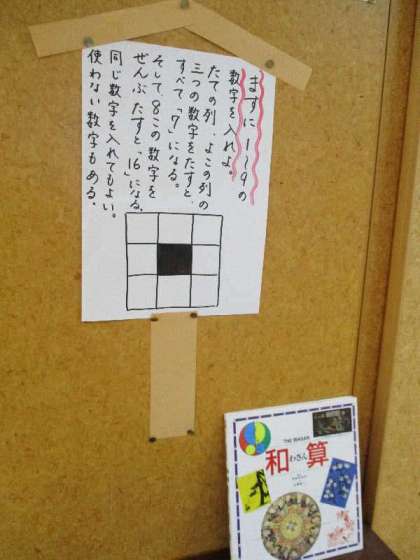 ますに 1〜9の
数字を入れよ。
たての列、よこの列の
三つの数字をたすと、
すべて「7」になる。
そして、8この数字を
ぜんぶたすと、「16」になる。
同じ数字を入れてもよい。
使わない数字もある。
THE WASAN
和算
わさん